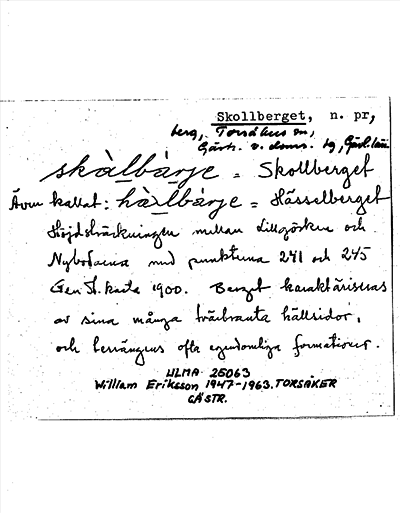 Skollberget, n. pr,
berg, Torsåkers sn,
Gästr. v. doms. tg, Gävl. län
skàlbàrje = Skollberget
Även kallat: hàslbàrje = Hässelberget
Höjdsträckningen mellan Lillgösken och
Nybodarna med punkterna 241 och 245
Gen.st. karta 1900. Berget karaktäriseras
av sina många tvärbranta hällsidor,
och terrängens ofta egendomliga formationer.
ULMA 25063
William Eriksson 1947-1963. TORSÅKER
GÄSTR.